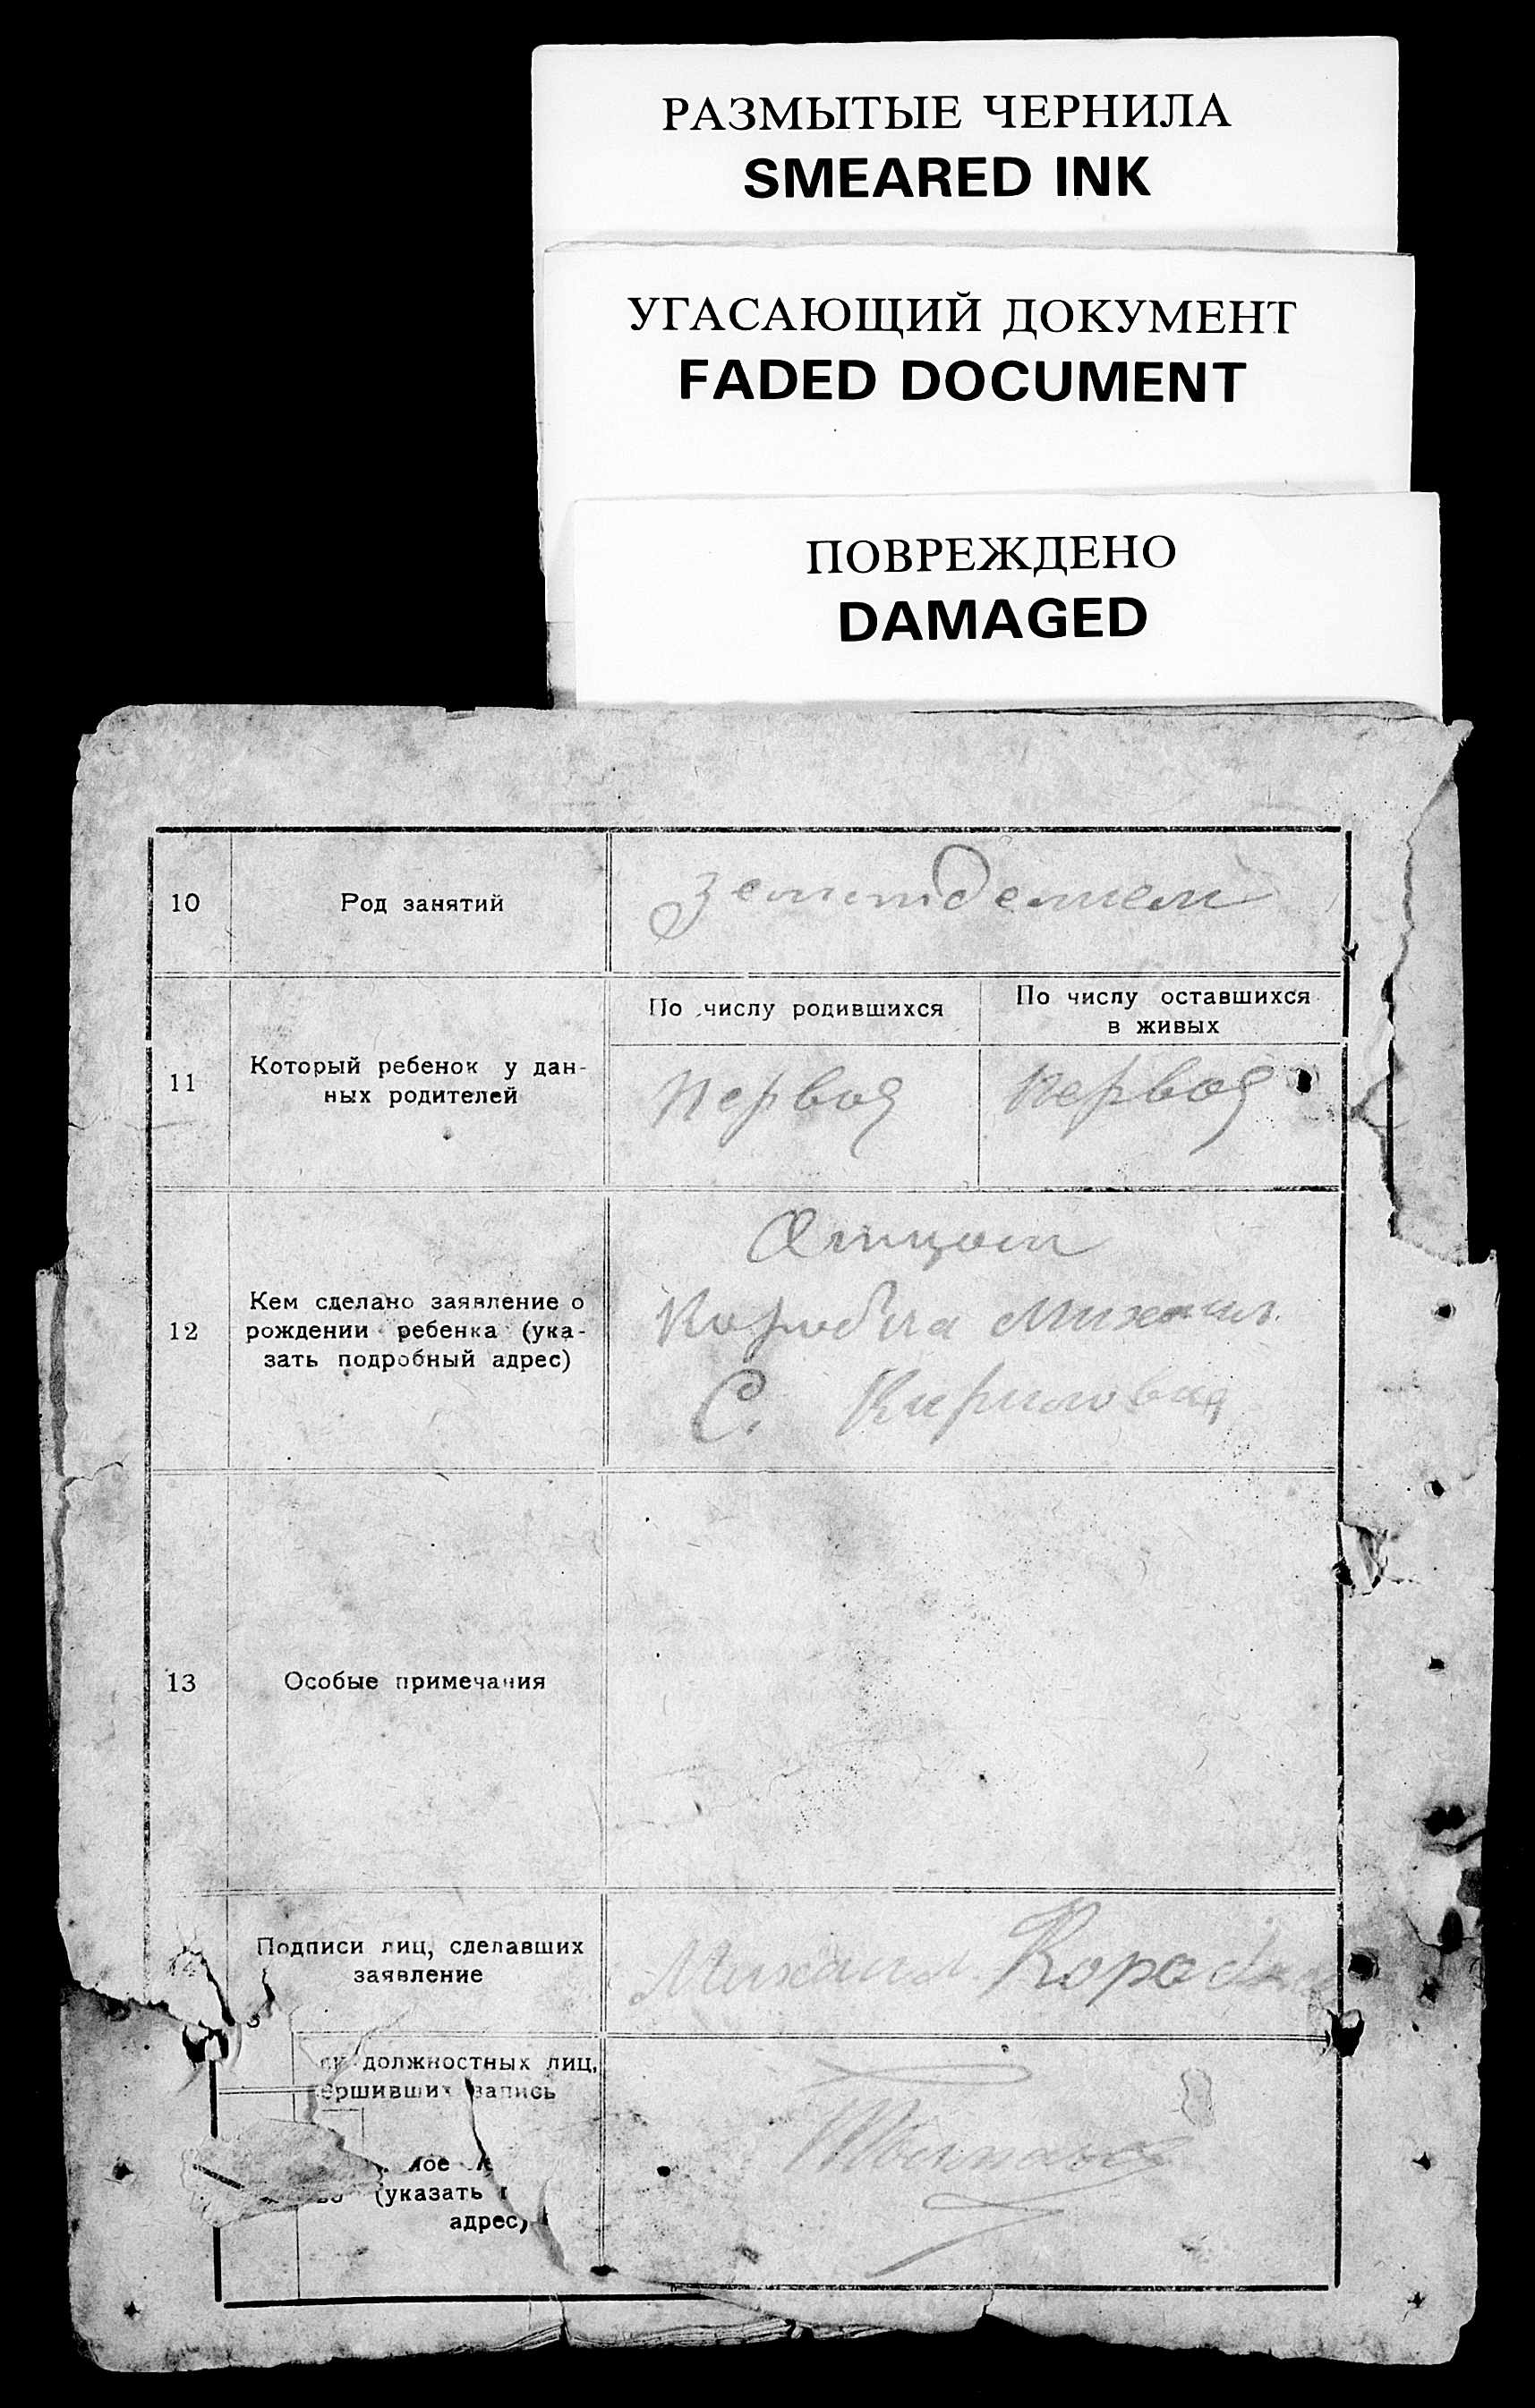 РАЗМЫТЫЕ ЧЕРНИЛА
SMEARED INK
УГАСАЮЩИЙ ДОКУМЕНТ
FADED DOCUMENT
ПОВРЕЖДЕНО
DAMAGED
10
Род занятий
11
Который ребенок у дан-
ных родителей
По числу родившихся
По числу оставшихся
в живых
первая
первая
12
Кем сделано заявление о
рождении ребенка (ука-
зать подробный адрес)
Отцом
Михаил
С.
13
Особые примечания
14
Подписи лиц, сделавших
заявление
Михаил
должностных лиц,
запись
(указать
адрес)